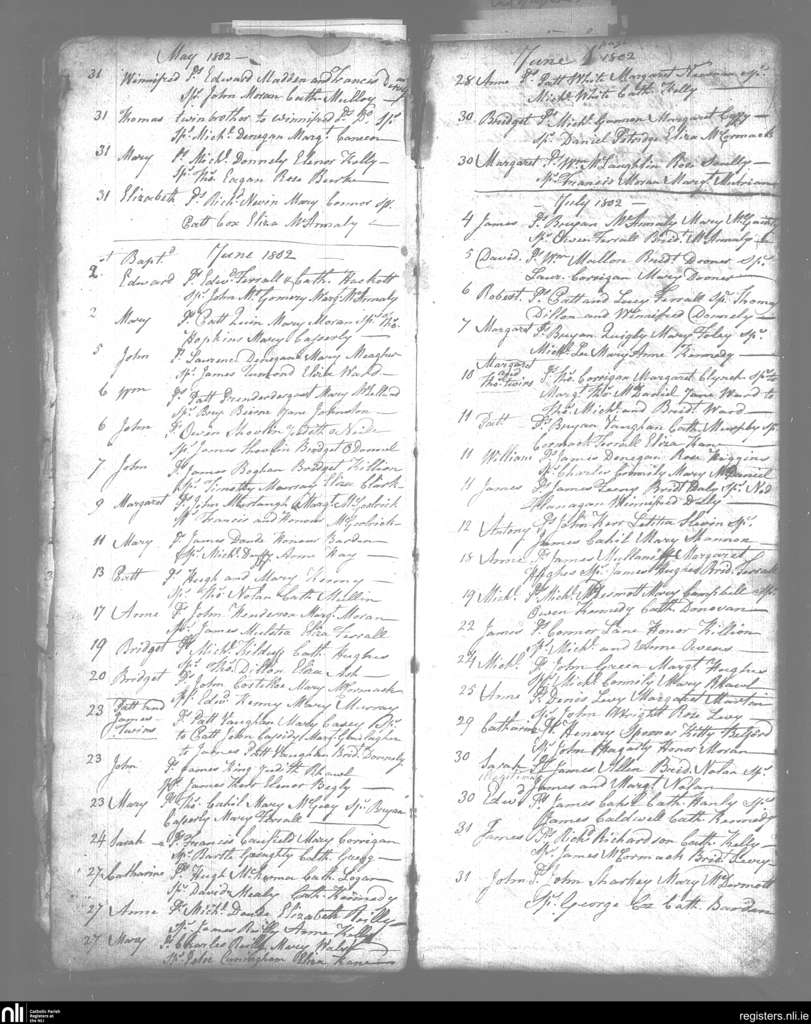 May 1802
31 Winnifred Ps. Edward Madden and Frances
Sps. John Moran Cath. Mulloy
31 Thomas twin brother to Winnifred Ps. Do. Sps.
Sps. Michl. Donegan Margt.
31 Mary Ps. Michl. Donnely Elenor Kelly
Sps. Thos. Eagan Rose Burke
31 Elizabeth Ps. Richd. Nevin Mary Connor Sps.
Patt Cox Eliza McAnnaly
Bapts. June 1802
2 Edward Ps. Edwd. Ferrall & Cath. Haskett
Sps. John McGomery Margt. McAnnaly
2 Mary Ps. Patt Quin Mary Moran Sps. Thos.
Hopkins Mary Casserly
5 John Ps. Laurence Donegan Mary Meagher
Sps. James Eliza Ward
6 Wm Ps. Patt Prenderdergast Mary
Sps. Bryn Beirne Jane Johnston
6 John Ps. Owen Shovlin
Sps. James Shovlin Bridget O Donnel
7 John Ps. James Boghan Bridget Killion
Sps. Timothy Murray Eliza Clark
9 Margaret Ps. John Murtaugh Margt. McGoolrick
Sps. Francis and Honour McGoolrick
11 Mary Ps. James Davis Honour Barden
Sps. Michl. Duffy Anne Kay
13 Patt Ps. Hugh and Mary Kenny
Sps. Thos. Nolan Cath Mullin
17 Anne Ps. John Henderson Margt. Moran
Sps. James Eliza Ferrall
19 Bridget Ps. Michl. Kilduff Cath. Hughes
Sps. Thos. Dillon Eliza Ash
20 Bridget Ps. John Costello Mary McCormack
Sps. Edwd. Kenny Mary Murray
23 Patt and James Twins Ps. Patt Vaughan Mary Casey Sps.
to Patt John Cassidy Margt. Gallagher
to James Patt Vaughan Brid. Donnely
23 John Ps. James King Judith
Sps. James Kerr Elenor Begly
23 Mary Ps. Thos. Cahil Mary McGoey Sps. Bryan
Casserly Mary Ferrall
24 Sarah Ps. Francis Caufield Mary Corrigan
Sps. Bartle Geraghty Cath. Gregg
27 Catharine Ps. Hugh McKerna Cath. Logan
Sps. David Healy Cath Kennedy
27 Anne Ps. Michl. Elizabeth Reilly
Sps. James Reilly Anne Kelly
27 Mary Ps. Charles Reilly Mary Walsh
Sps. John Cuningham Eliza
June 1802
28 Anne Ps. Patt White Margaret Newman Sps.
Michl. White Cath. Kelly
30 Bridget Ps. Michl. Gannon Margaret
Sps. Daniel Eliza McCormack
30 Margaret Ps. Wm McLaughlin Rose Smilly
Sps. Francis Moran Margt.
July 1802
4 James Ps. Bryan McAnnaly Mary
Sps. Owen Ferrall Bridt. McAnnaly
5 David Ps. Wm Mallon Bridt Downes Sps.
Laur. Corrigan Mary Downes
6 Robert Ps. Patt and Lucy Ferrall Sps. Thomas
Dillon and Winnifred Donnely
7 Margaret Ps. Bryan Quigly Mary Foley Sps.
Michl. Lee Mary Anne Kennedy
10 Margaret and Thos. twins Ps. Thos. Corrigan Margaret Clynch Sps. to
Margt. Thos. McDaniel Jane Ward to
Thos. Michl. and Bridt. Ward
11 Patt Ps. Bryan Vaughan Cath. Murphy Sps.
Cormack Ferrall Eliza Kane
11 William Ps. James Donegan Rose Higgins
Sps. Charles Connily Mary McDaniel
11 James Ps. James Bridt Daly Sps. Ned
Flannagan Winnifred Daly
12 Antony Ps. John Kerr Letitia Slevin Sps.
James Cahil Mary Shannon
18 Anne Ps. James Mullaniff Margaret
Hughes Sps. James Hughes Brid. Ferrall
19 Michl. Ps. Michl. McDermott Mary Campbell Sps.
Owen Kennedy Cath. Donovan
22 James Ps. Connor Lane Honor Killion
Sps. Michl. and Anne Owens
24 Michl. Ps. John Green Margt. Hughes
Sps. Michl. Connily Mary
25 Anne Ps. Denis Levy Margaret Martin
Sps. John Wright Rose Levy
29 Catharine Ps. Henery Spooner Kitty Telford
Sps. John Hagarty Honor Moran
30 Sarah Ps. James Allen Brid. Nolan Sps.
James and Margt. Nolan
30 Edwd Ps. James Cahil Cath. Hanly Sps.
James Caldwell Cath. Kennedy
31 James Ps. Richd. Richardson Cath. Kelly
Sps. James McCormack Brid. Levy
31 John Ps. John Sharkey Mary McDermott
Sps. George Cox Cath. Barden
nli
Catholic Parish
Registers at
the NLI
registers.nli.ie